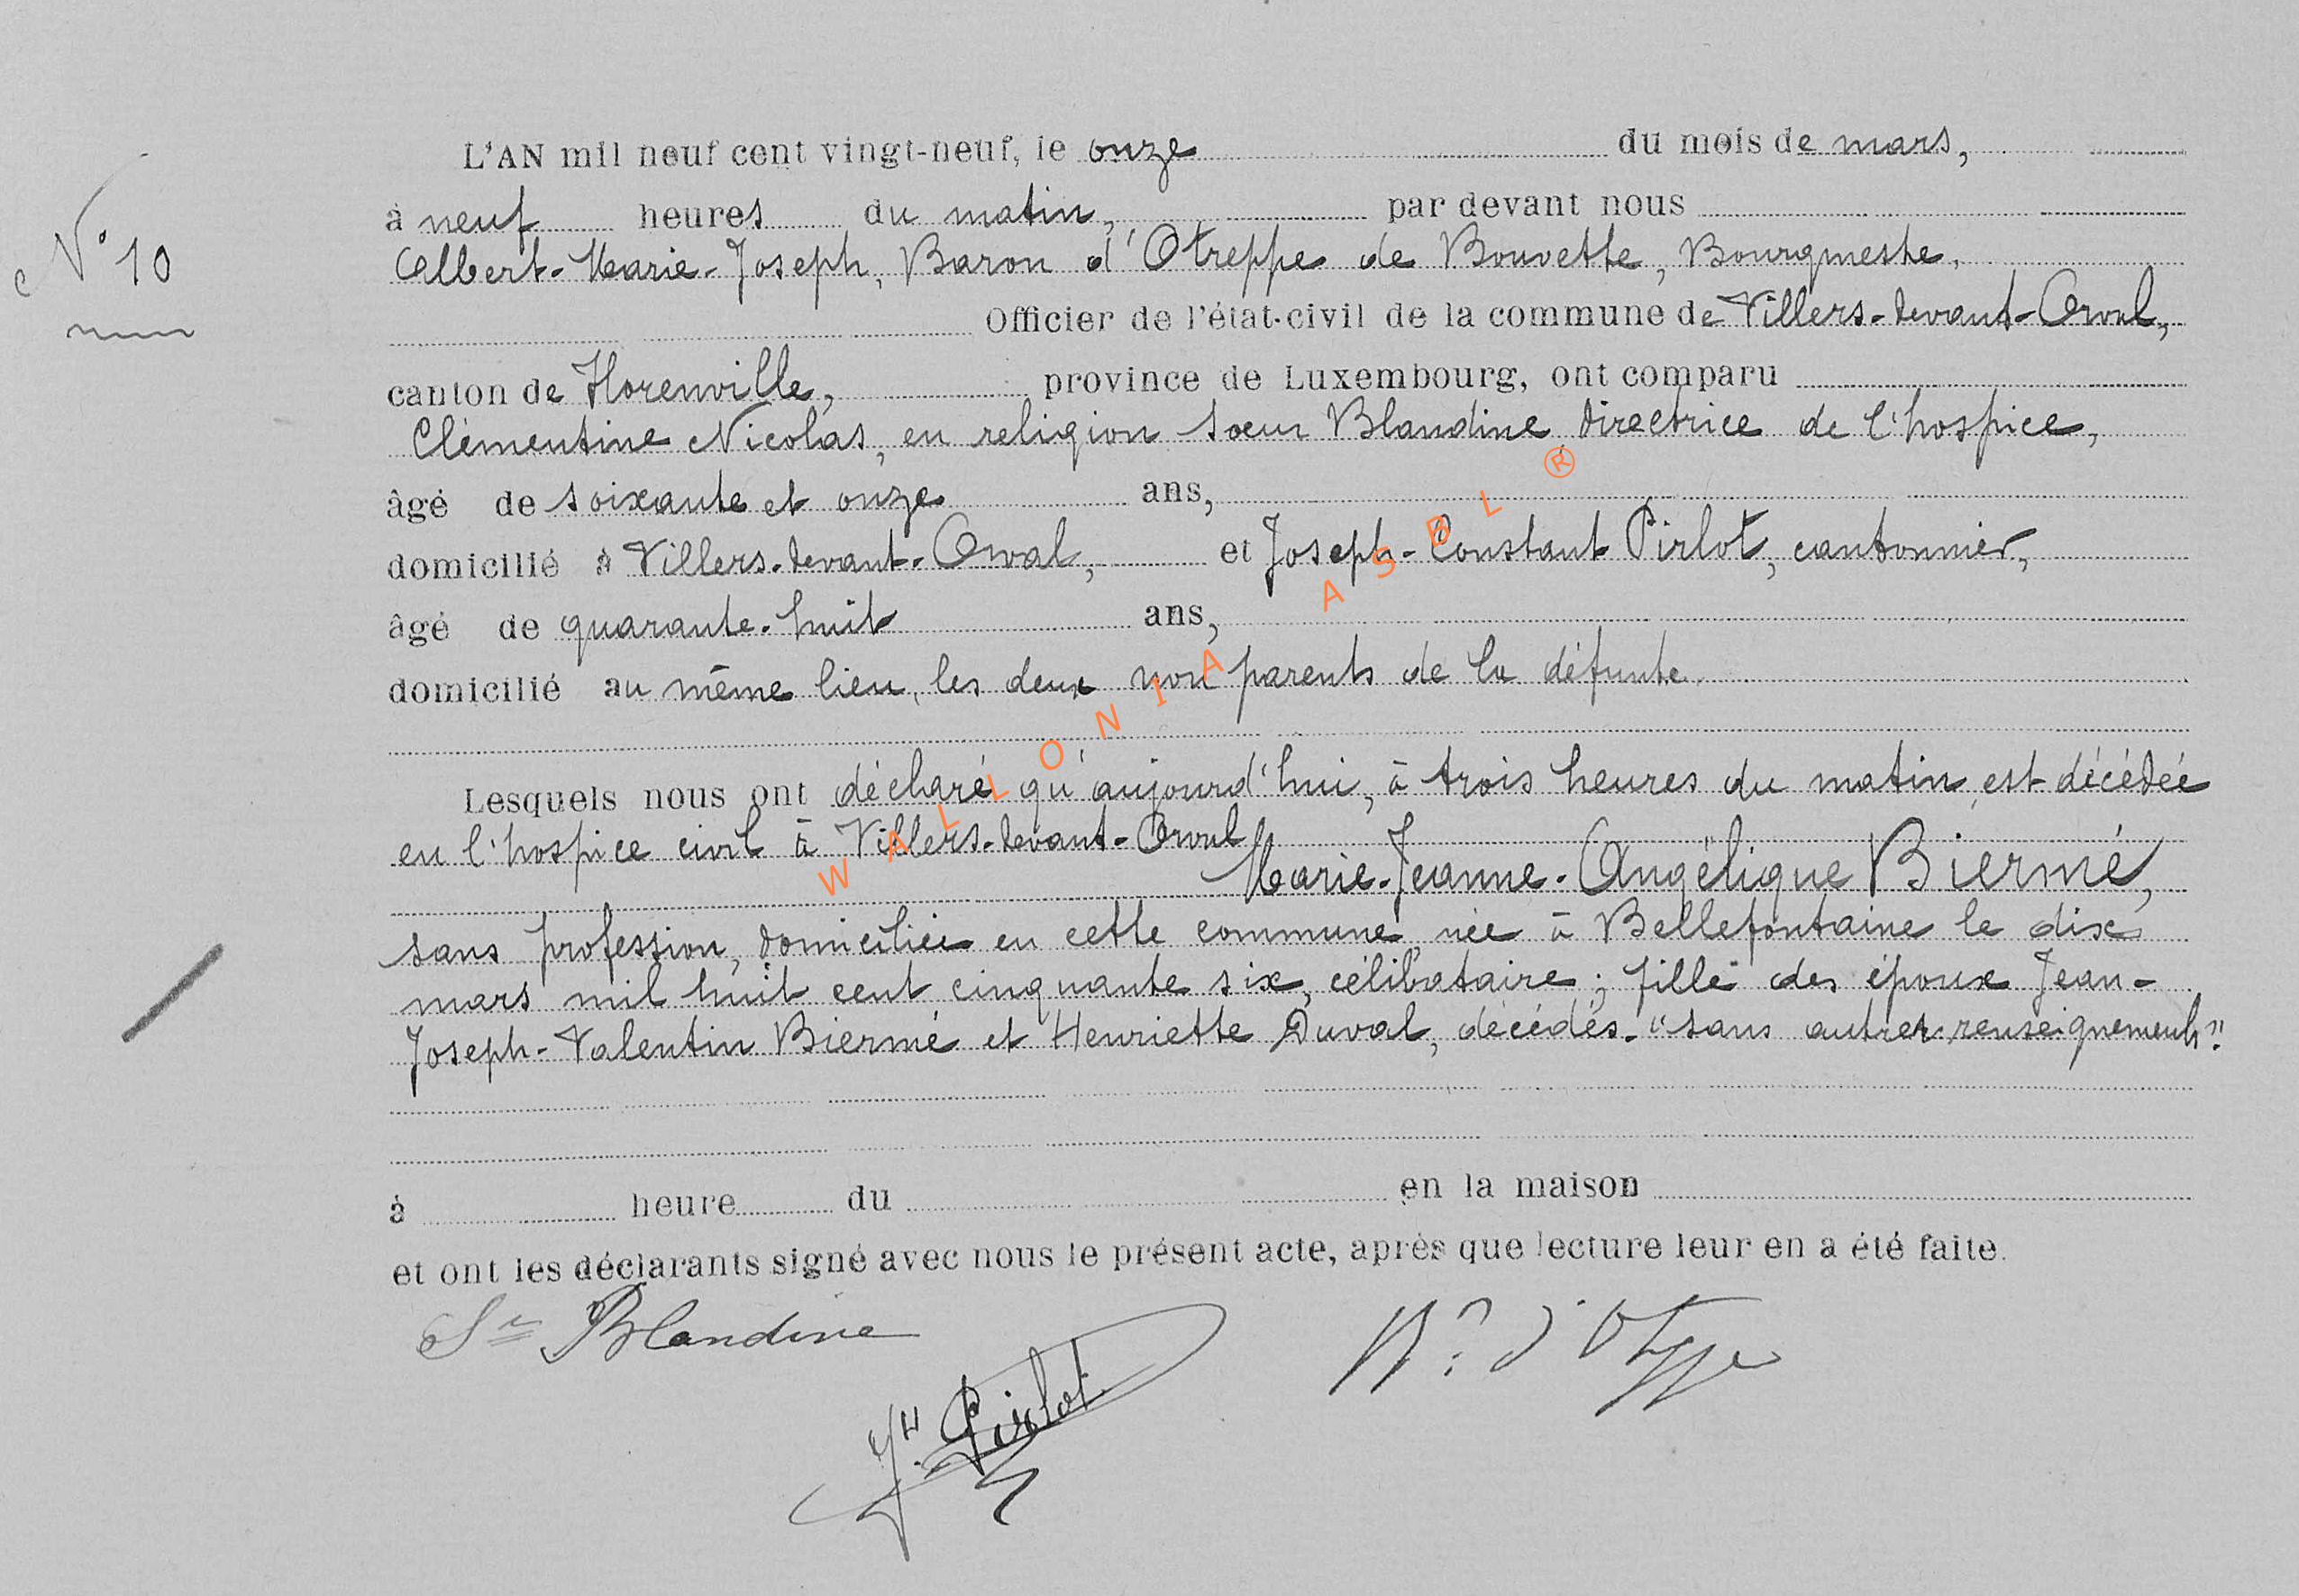 L'AN mil neuf cent vingt-neuf, le onze du mois de mars,
à neuf heures du matin, par devant nous
N° 10
Albert-Marie-Joseph, Baron d'Otreppe de Bouvette, Bourgmestre,
Officier de l'état-civil de la commune de Villers-devant-Orval,
canton de Florenville, province de Luxembourg, ont comparu
Clémentine Nicolas, en religion soeur Blandine, directrice de l'hospice,
âgé de soixante et onze ans,
domicilié à Villers-devant-Orval, et Joseph-Constant Pirlot, cantonnier,
âgé de quarante-huit ans,
domicilié au même lieu, les deux non parents de la défunte.
Lesquels nous ont déclaré qu'aujourd'hui, à trois heures du matin, est décédée
en l'hospice civil à Villers-devant-Orval
Marie-Jeanne-Angélique Biermé,
sans profession, domiciliée en cette commune, née à Bellefontaine le dix
mars mil huit cent cinquante six, célibataire; fille des époux Jean-
Joseph-Valentin Biermé et Henriette Duval, décédés. "sans autres renseignements".
à heure du en la maison
et ont les déclarants signé avec nous le présent acte, après que lecture leur en a été faite.
Sr Blandine
Jh. Pirlot
Bon d'Otreppe
WALLONIA ASBL ®